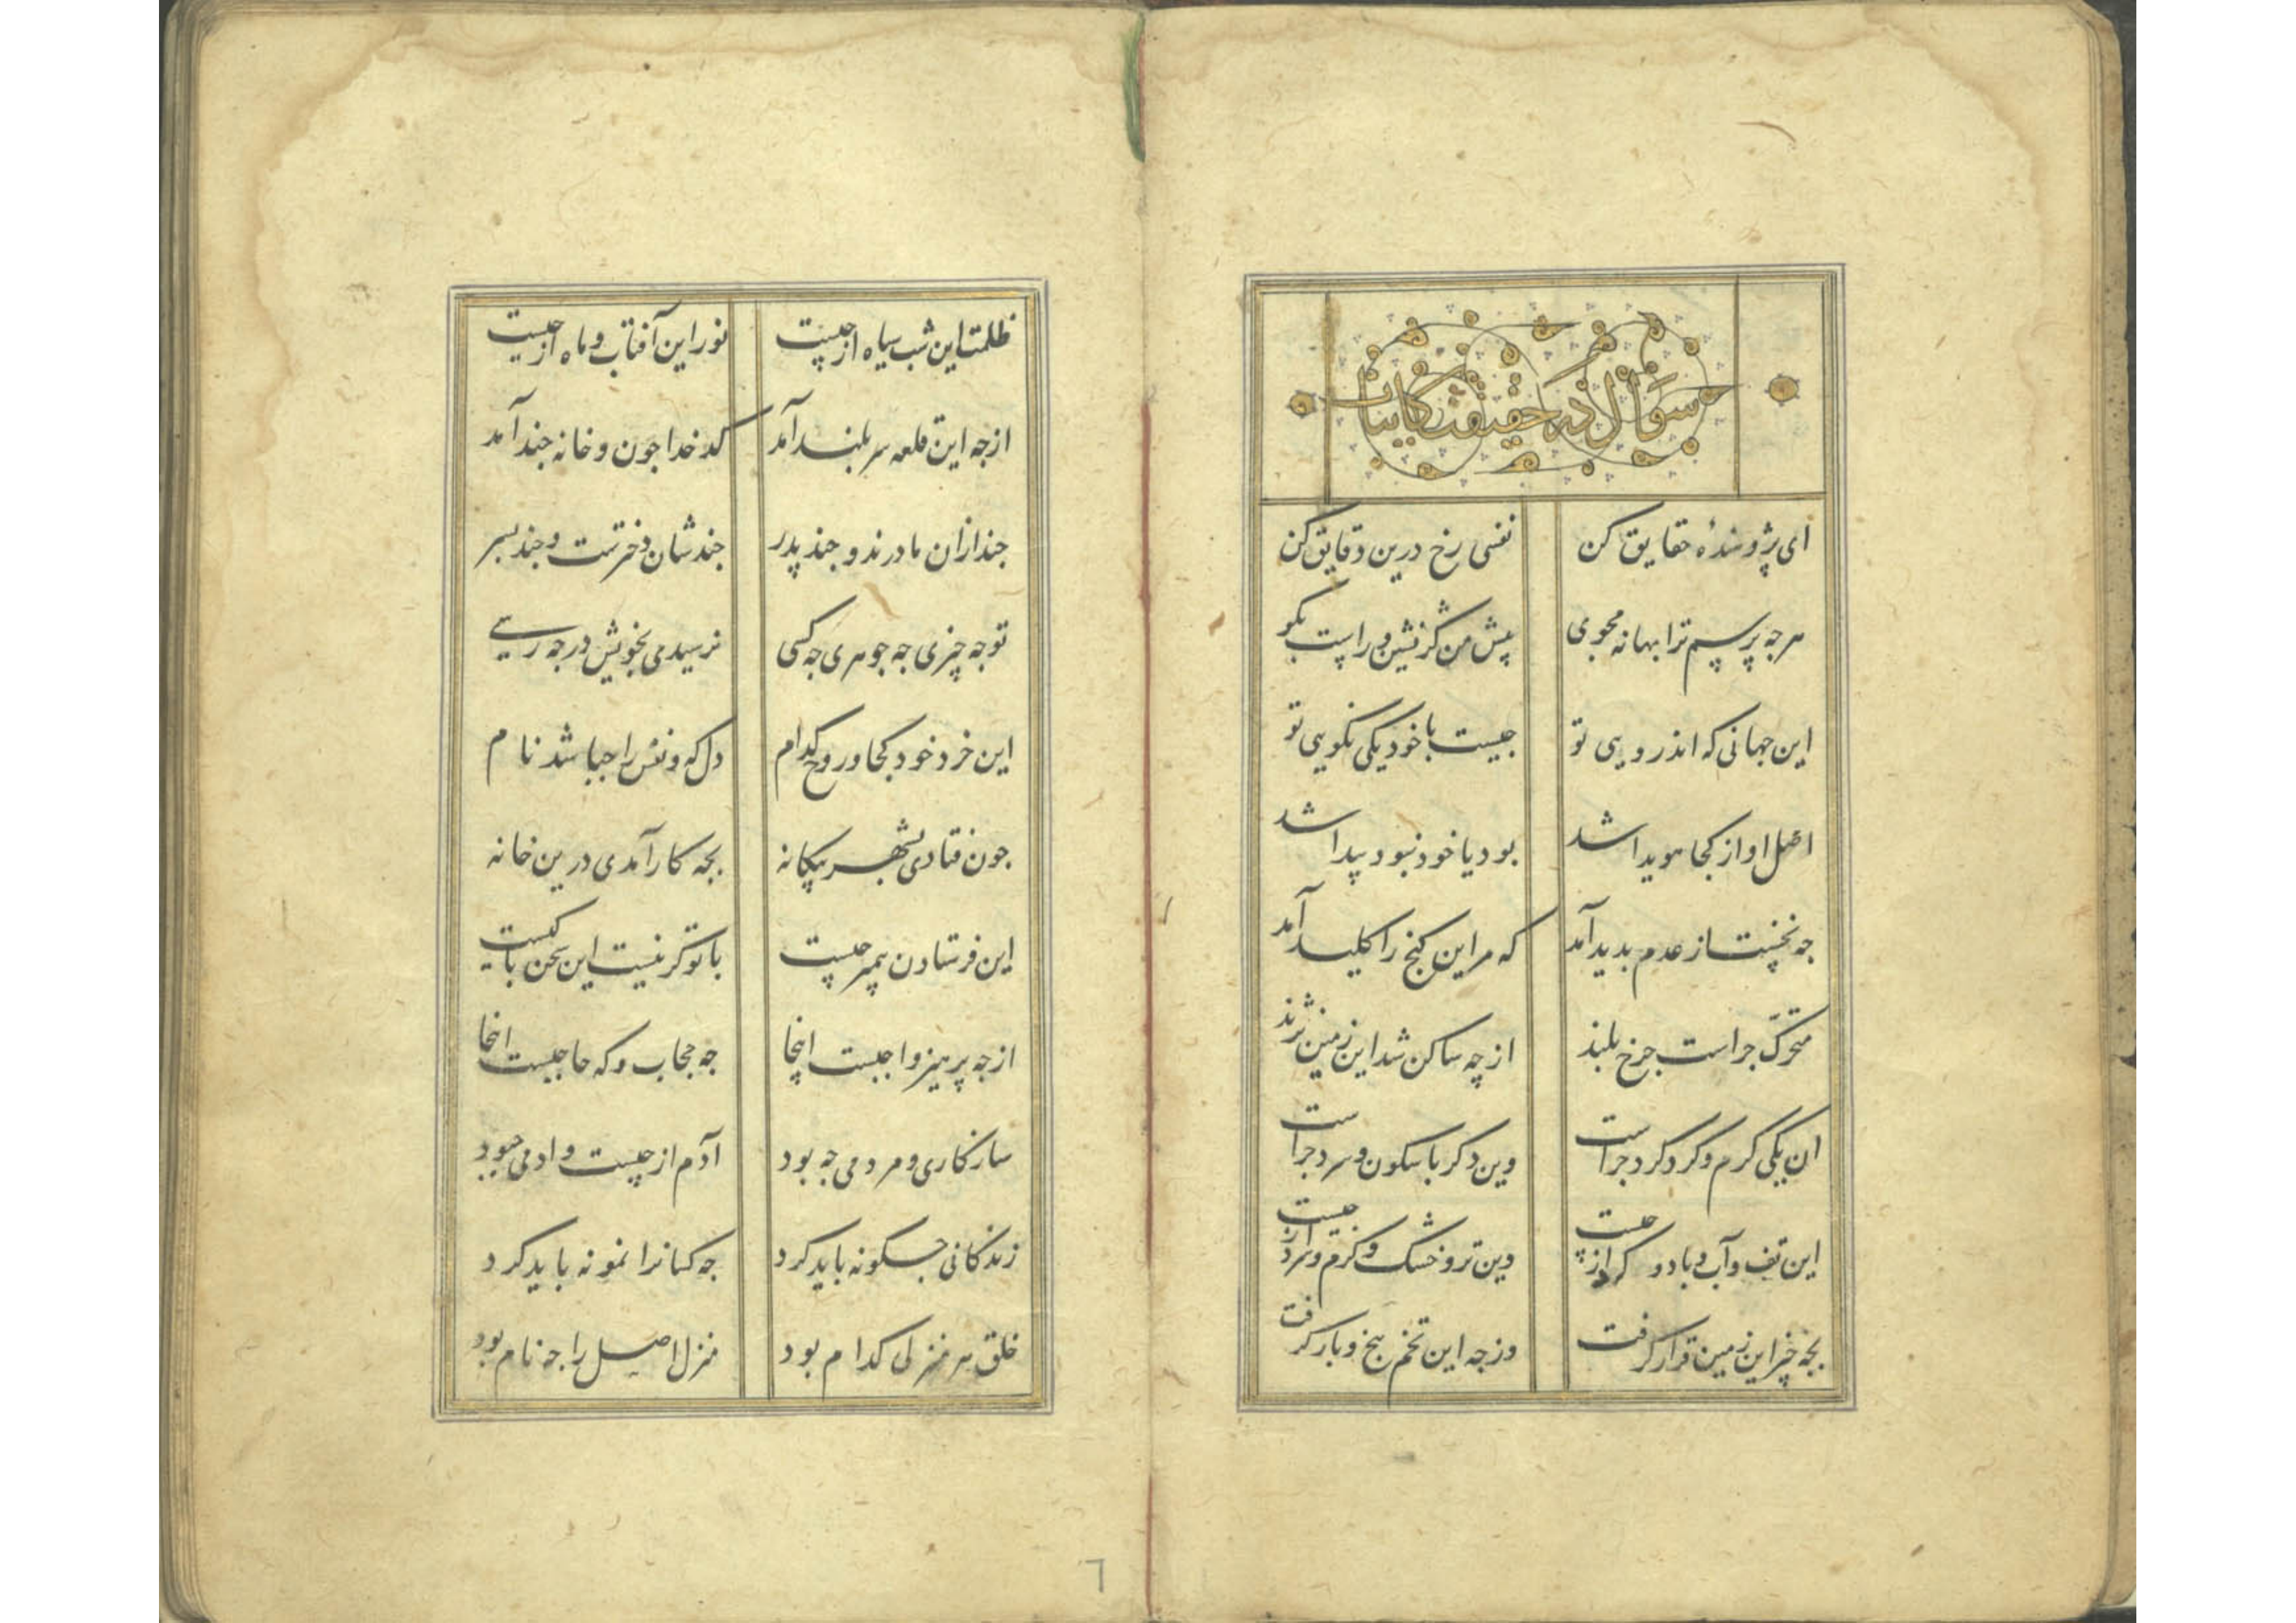 سوال در حقیقت کاینات
ای پژوهندهٔ حقایق کن نفسی رخ درین دقایق کن
هرجه پرسم ترا بهانه مجوی پیش من کژ نشین و راست بکو
این جهانی که اندرویی تو جیست با خود یکی نکویی تو
اصل او از کجا هویدا شد بود یا خود نبود پیدا شد
جه نخست از عدم بدید آمد که مر این کنج را کلید آمد
متحرّک جراست جرخ بلند از چه ساکن شد این زمین نژند
ان یکی کرم و کرد کرد جراست وین دکر با سکون و سرد جراست
این تف و آب و باد و کرد از چیست وین تر و خشک و کرم و سرد از جیست
بجه خیر این زمین قرار کرفت وز جه این تخم بیخ و بار کرفت
ظلمت این شب سیاه از چیست نور این آفتاب و ماه از جیست
ازجه این قلعه سر بلند آمد کدخدا جون و خانه جند آمد
جند ازان مادرند و جند پدر جند شان دخترست و جند بسر
تو جه چیزی جه جوهری جه کسی نرسیدی بخویش در جه رسی
این خرد خود کجا و روح کدام دل که و نفس را جبا شد نام
جون فتادی بشهر بیکانه بجه کار آمدی درین خانه
این فرستادن پیمبر چیست با تو کر نیست این سخن با کیست
ازجه پرهیز واجبست اینجا جه حجاب و که حاجبست اینجا
سازکاری و مردمی جه بود آدم از چیست و ادمی جبود
زندکانی جکونه باید کرد جه کسانرا نمونه باید کرد
خلق هر منزلی کدام بود منزل اصل را جه نام بود
٦